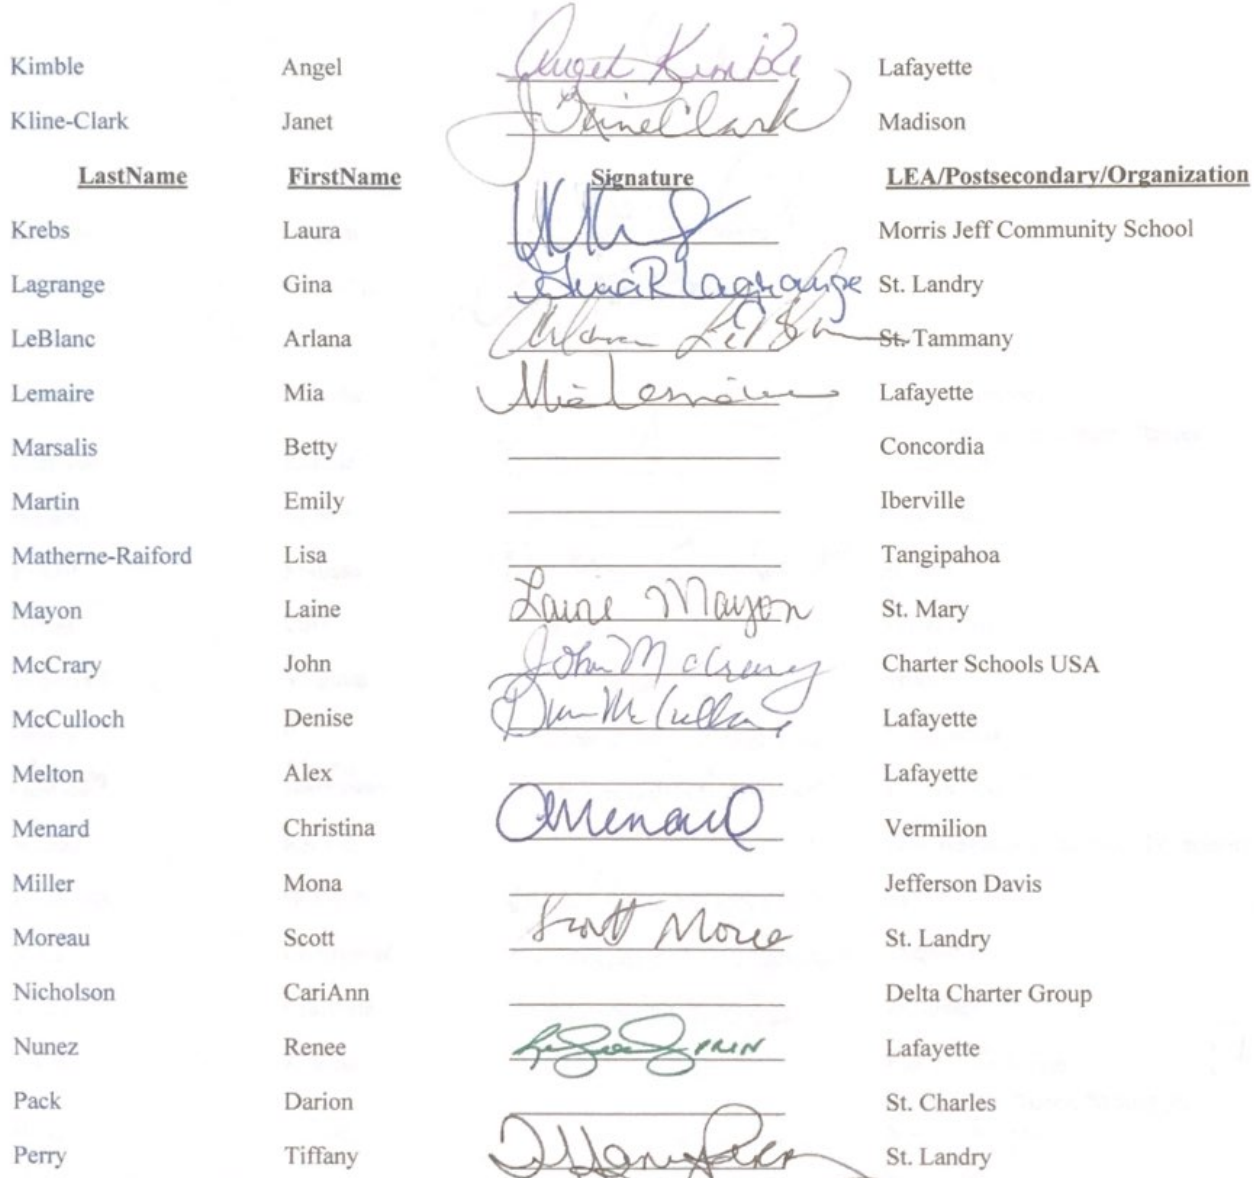 Kimble Angel Angel Kimble Lafayette
Kline-Clark Janet J Kline Clark Madison
LastName FirstName Signature LEA/Postsecondary/Organization
Krebs Laura Morris Jeff Community School
Lagrange Gina Gina R Lagrange St. Landry
LeBlanc Arlana Arlana LeBlanc St. Tammany
Lemaire Mia Mia Lemaire Lafayette
Marsalis Betty Concordia
Martin Emily Iberville
Matherne-Raiford Lisa Tangipahoa
Mayon Laine Laine Mayon St. Mary
McCrary John John McCrary Charter Schools USA
McCulloch Denise Denise McCulloch Lafayette
Melton Alex Lafayette
Menard Christina CMenard Vermilion
Miller Mona Jefferson Davis
Moreau Scott Scott Moreau St. Landry
Nicholson CariAnn Delta Charter Group
Nunez Renee PRIN Lafayette
Pack Darion St. Charles
Perry Tiffany Tiffany Perry St. Landry